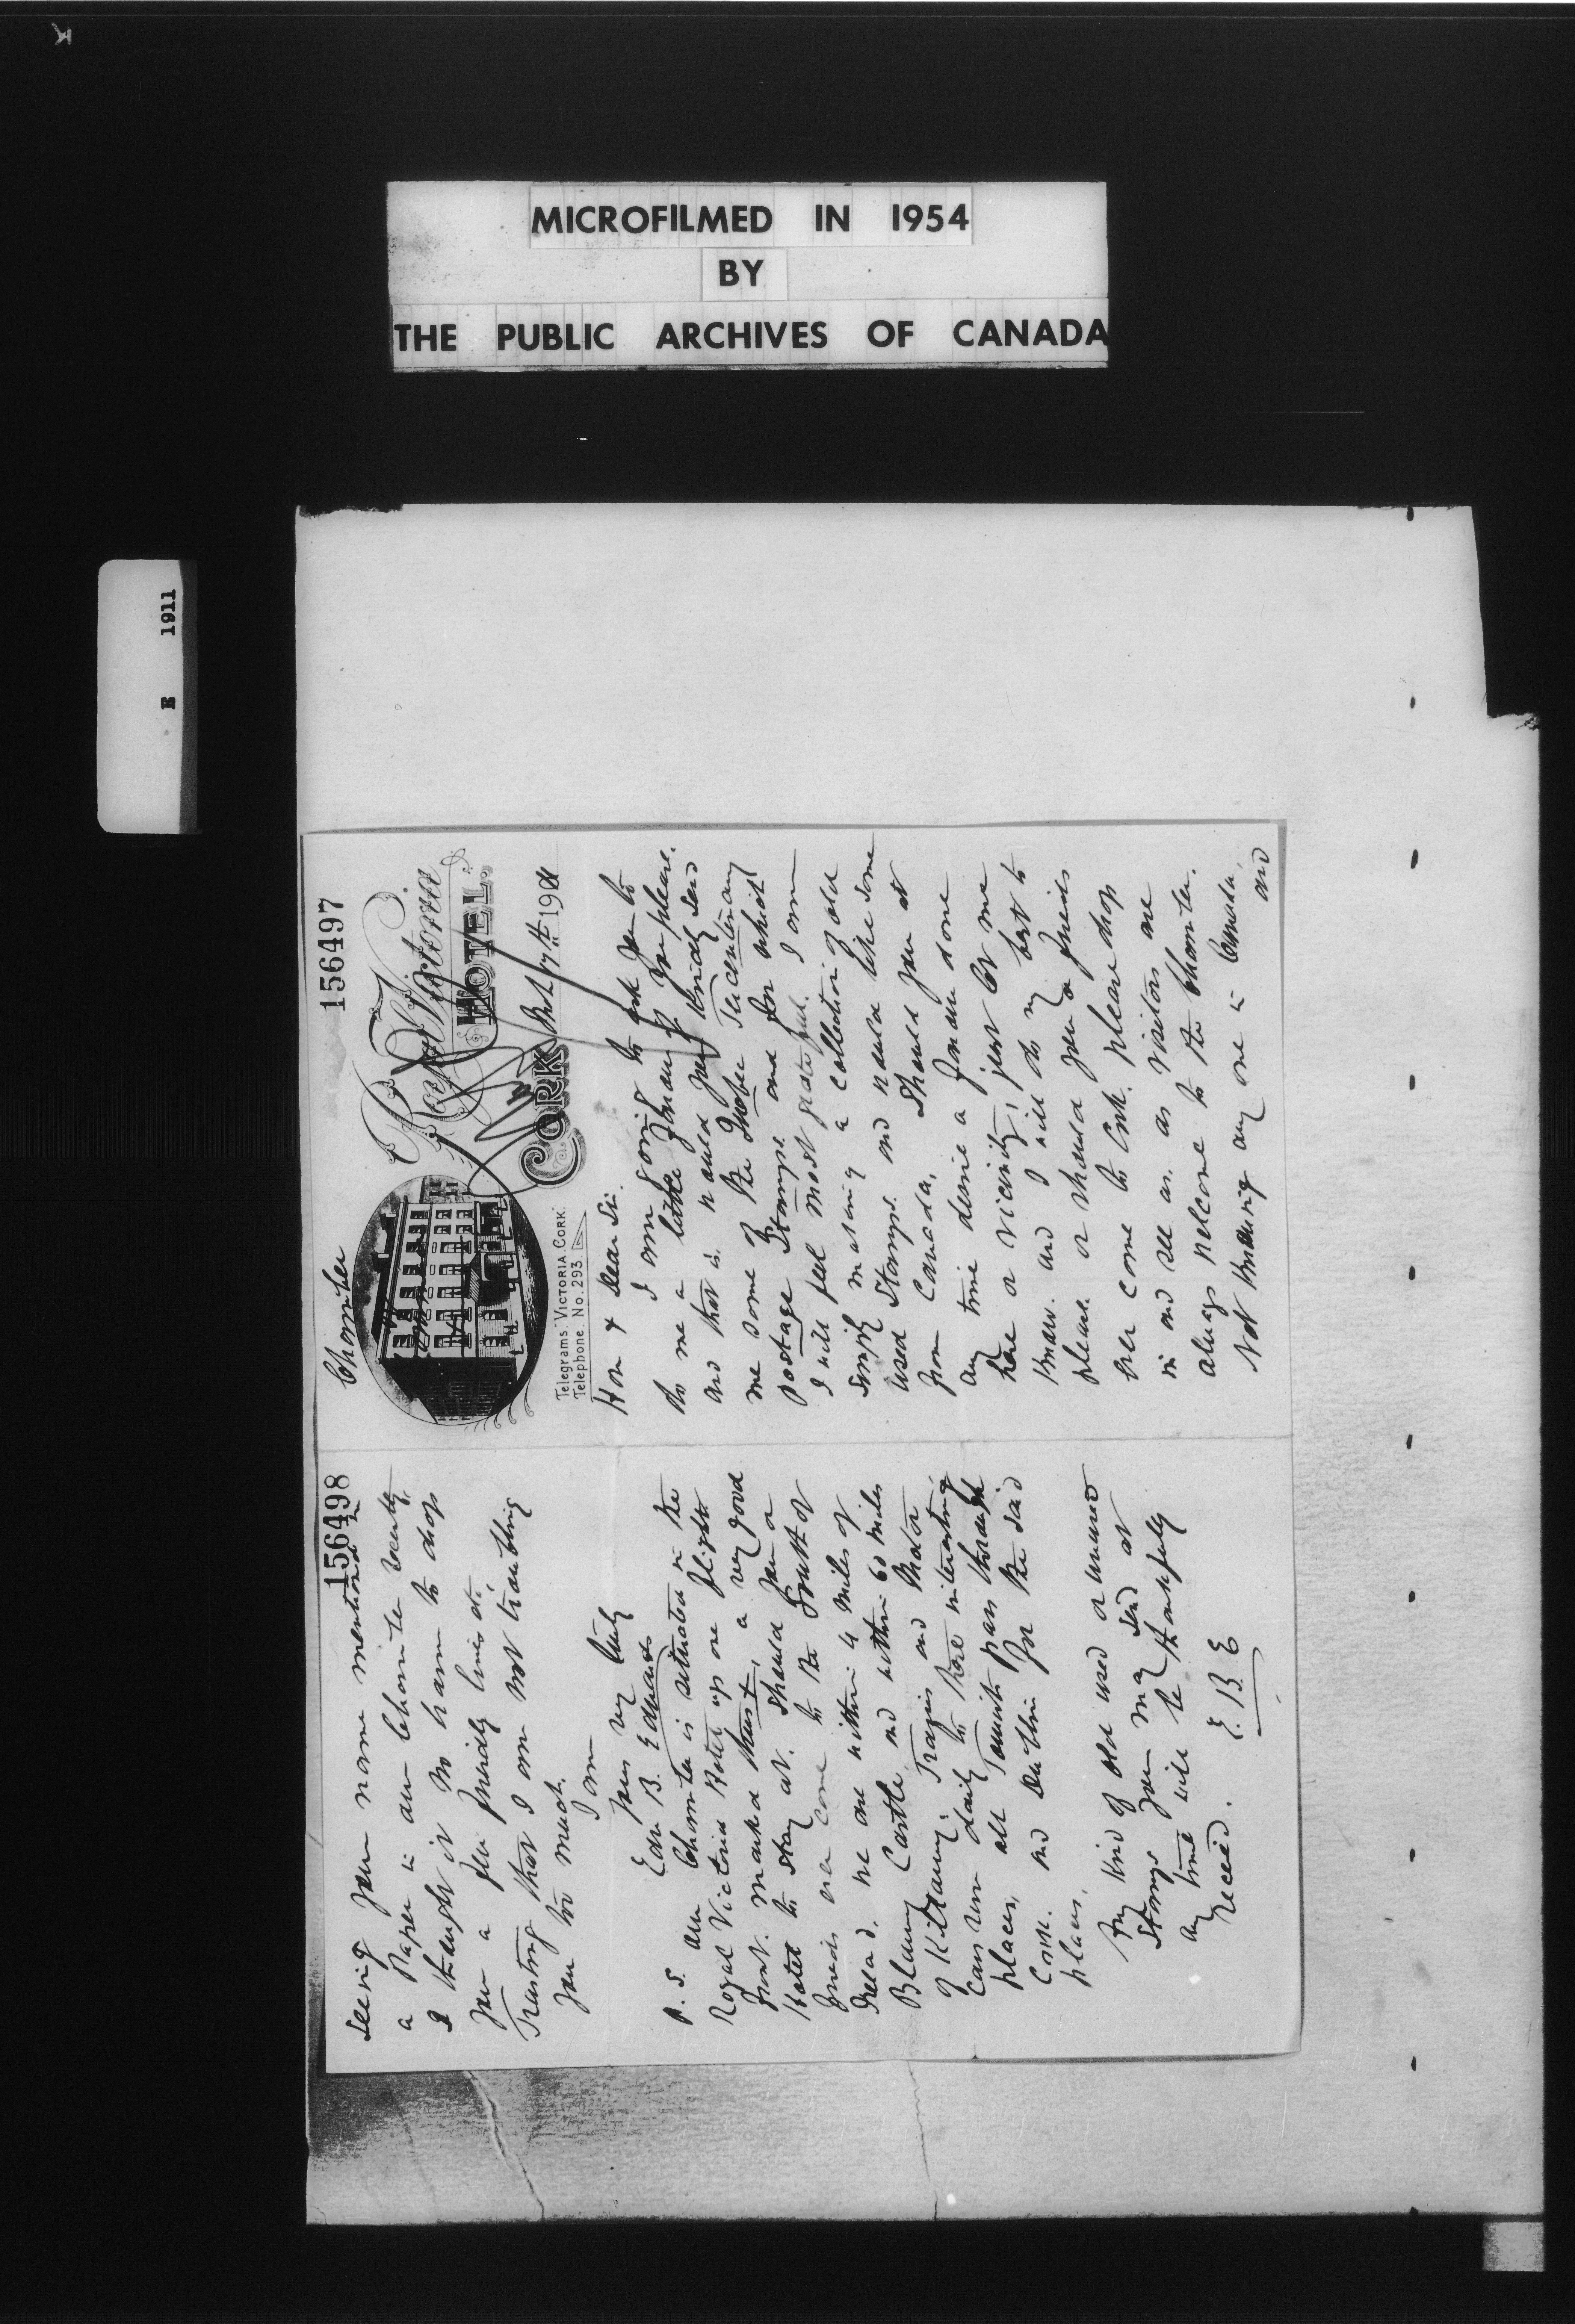 MICROFILMED IN 1954
BY
THE PUBLIC ARCHIVES OF CANADA
E 1911
156497
Chamber
Royal Victoria
HOTEL.
CORK
Telegrams: VICTORIA CORK.
Telephone. No. 293
17th 1911
Hon & Dear Sir.
I am going to ask you to
do me a little favour if you please.
and that is. would you kindly send
me some of the Quebec Tercentenary
postage Stamps. and for which
I will feel most grateful. I am
simply making a collection of old
used Stamps. and would like some
from Canada. Should you at
any time desire a favour done
here or vicinity, just let me
know. and I will do my best to
please. or should you or friends
ever come to Cork. please drop
in and see us. as visitors are
always welcome to the Chamber.
Not knowing any one in Canada,
and
156498
seeing your name mentioned in
a Paper in our Chamber recently,
I thought it no harm to drop
you a few friendly lines etc.
Trusting that I am not troubling
you too much.
I am
yours very truly
Edw B. Edwards
P.S. our Chamber is situated in the
Royal Victoria Hotel up one flight
front. marked thus †, a very good
Hotel to stay at. should you or
friends ever come to the South of
Ireland. we are within 4 miles of
Blarney Castle. and within 60 miles
of Killarney. Trains and Motor
cars run daily to these interesting
places, all Tourists pass through
Cork. and Dublin for the said
places.
Any kind of old used or unused
Stamps you may send at
any time will be thankfully
receivd.
E. B. E